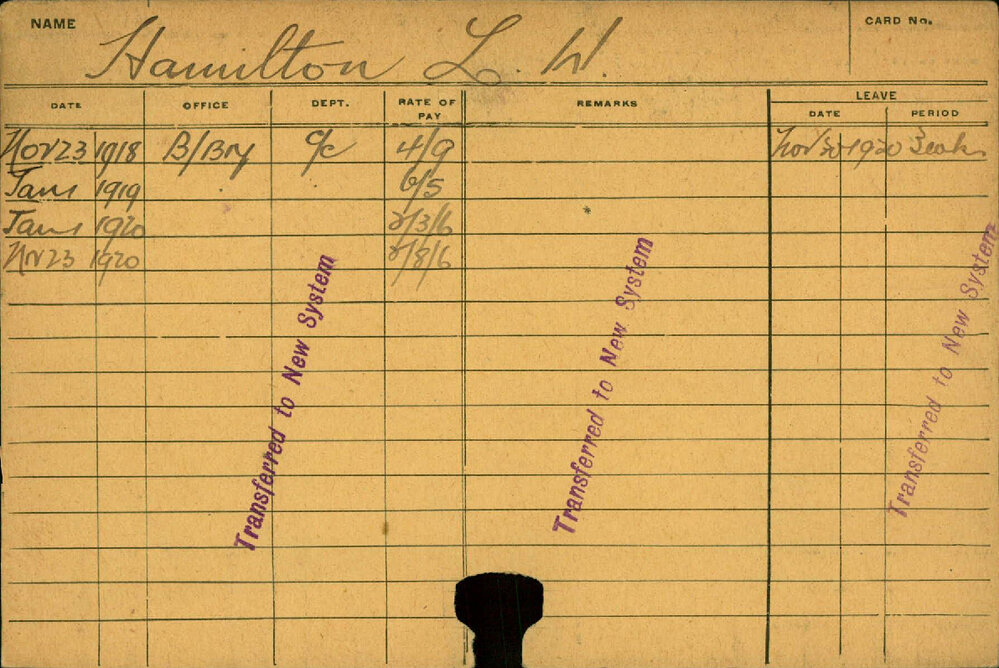 NAME Hamilton L. W. CARD No.
DATE OFFICE DEPT. RATE OF PAY REMARKS LEAVE
DATE PERIOD
Nov 23 1918 B/Bry 4/9 Nov 30 1920
1919 6/5
1920 /3/6
Nov 23 1920 /8/6
Transferred to New System
Transferred to New System
Transferred to New System